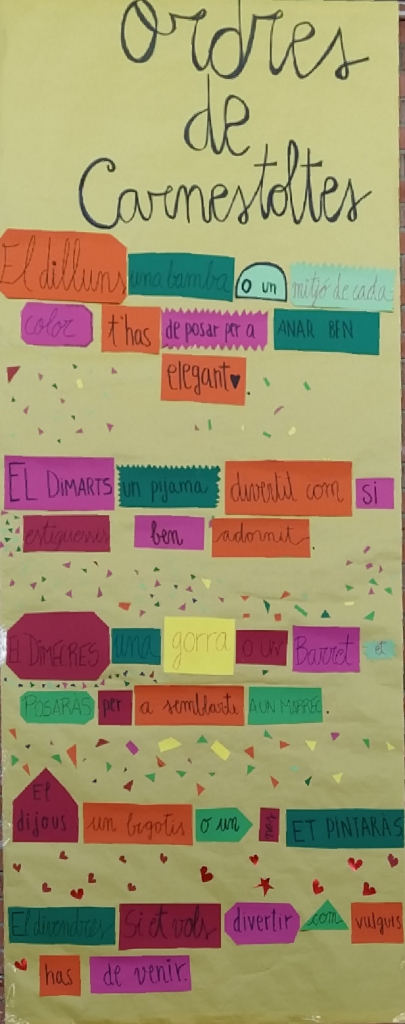 Ordres
de
Carnestoltes
El dilluns una bamba o un mitjó de cada
color t'has de posar per a ANAR BEN
elegant♥.
EL DIMARTS un pijama divertit com si
estiguessis ben adormit.
El DIMECRES una gorra o un Barret et
POSARÀS per a semblante A UN MARREC.
El
dijous un bigotis o un nas ET PINTARÀS
El divendres Si et vols divertir com vulguis
has de venir.